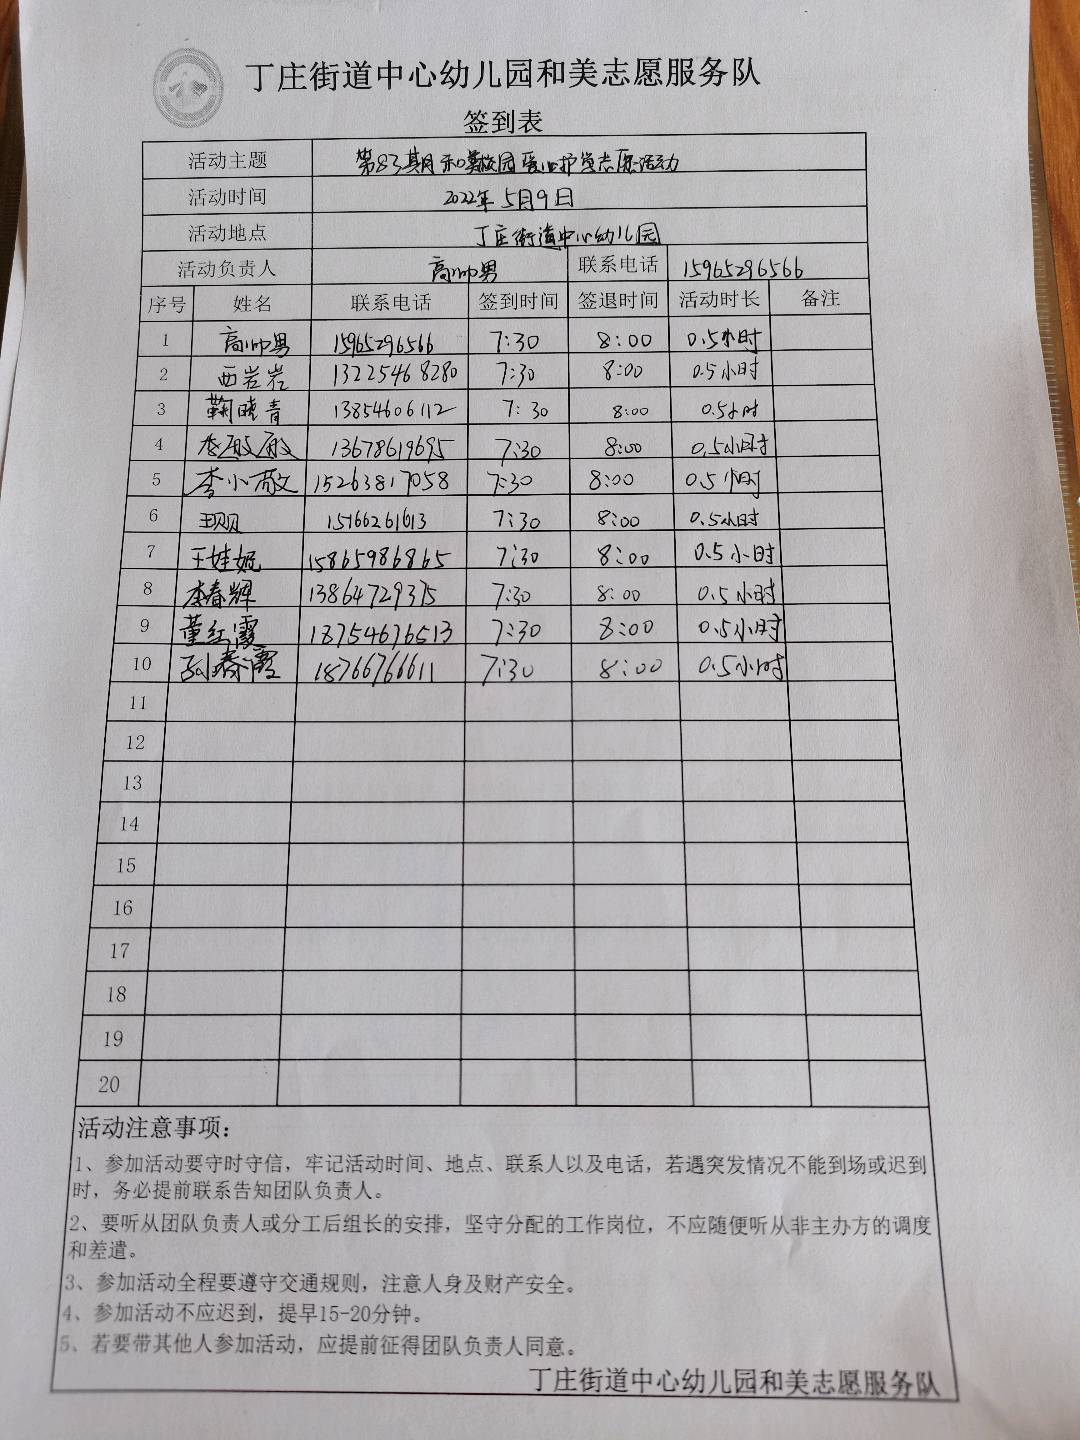 丁庄街道中心幼儿园和美志愿服务队
签到表
活动主题 第83期 和美校园 爱心护学志愿活动
活动时间 2022年5月9日
活动地点 丁庄街道中心幼儿园
活动负责人 高帅男 联系电话 15965296566
序号 姓名 联系电话 签到时间 签退时间 活动时长 备注
1 高帅男 15965296566 7:30 8:00 0.5小时
2 西岩岩 13225468280 7:30 8:00 0.5小时
3 鞠晓青 13854606112 7:30 8:00 0.5小时
4 李殷殷 13678619695 7:30 8:00 0.5小时
5 李小敬 15263817058 7:30 8:00 0.5小时
6 王贝贝 15166261613 7:30 8:00 0.5小时
7 王娃姬 15865986865 7:30 8:00 0.5小时
8 李春辉 13864729375 7:30 8:00 0.5小时
9 董红霞 18754676513 7:30 8:00 0.5小时
10 孙春霞 18766766611 7:30 8:00 0.5小时
11
12
13
14
15
16
17
18
19
20
活动注意事项：
1、参加活动要守时守信，牢记活动时间、地点、联系人以及电话，若遇突发情况不能到场或迟到
时，务必提前联系告知团队负责人。
2、要听从团队负责人或分工后组长的安排，坚守分配的工作岗位，不应随便听从非主办方的调度
和差遣。
3、参加活动全程要遵守交通规则，注意人身及财产安全。
4、参加活动不应迟到，提早15-20分钟。
5、若要带其他人参加活动，应提前征得团队负责人同意。
丁庄街道中心幼儿园和美志愿服务队